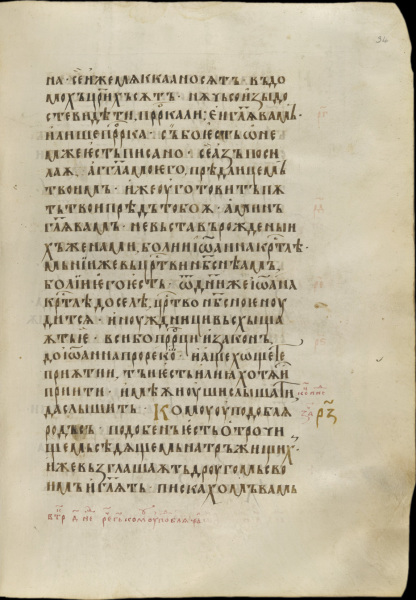 на · се иже мѧкка носѧтъ · въ до
мохъ цр҃ихъ сѫтъ · нѫ чьсо изыдо
сте видѣти, пр҃рка ли; еи гл҃ѫ вамъ ·
и лише пр҃рка · съ бо ѥстъ о не
мже ѥсть писано · се азъ посы
лаѫ аг҃гла моего, прѣд лицемь
твоимъ · иже оуготовитъ пѫ
ть твои прѣдъ тобоѫ · аминъ
гл҃ѫ вамъ · не въста въ рожденыи
хъ женами, болии іѡанна кр҃тлѣ ·
мьнии же въ цр҃тви нб҃снѣмъ
болии его ѥсть · ѿ днии же іѡанна
кр҃тлѣ доселѣ, цр҃тво нб҃сное ноу
дитсѧ · и ноуждници въсхыща
ѫтъ е · вси бо пр҃рци и законъ
до іоанна прореко · и аще хощете
приѧти, тъ ѥстъ илиа хотѧи
приити · имѣѧи оуши слышати
да слышитъ · Комоу оуподоблѧ
родъ сь · подобенъ ѥстъ отрочи
щемъ сѣдѧщемь на тръжищихъ
иже възглашаѫтъ дроугомъ сво
имъ и гл҃ѫтъ · пискахомъ вамъ